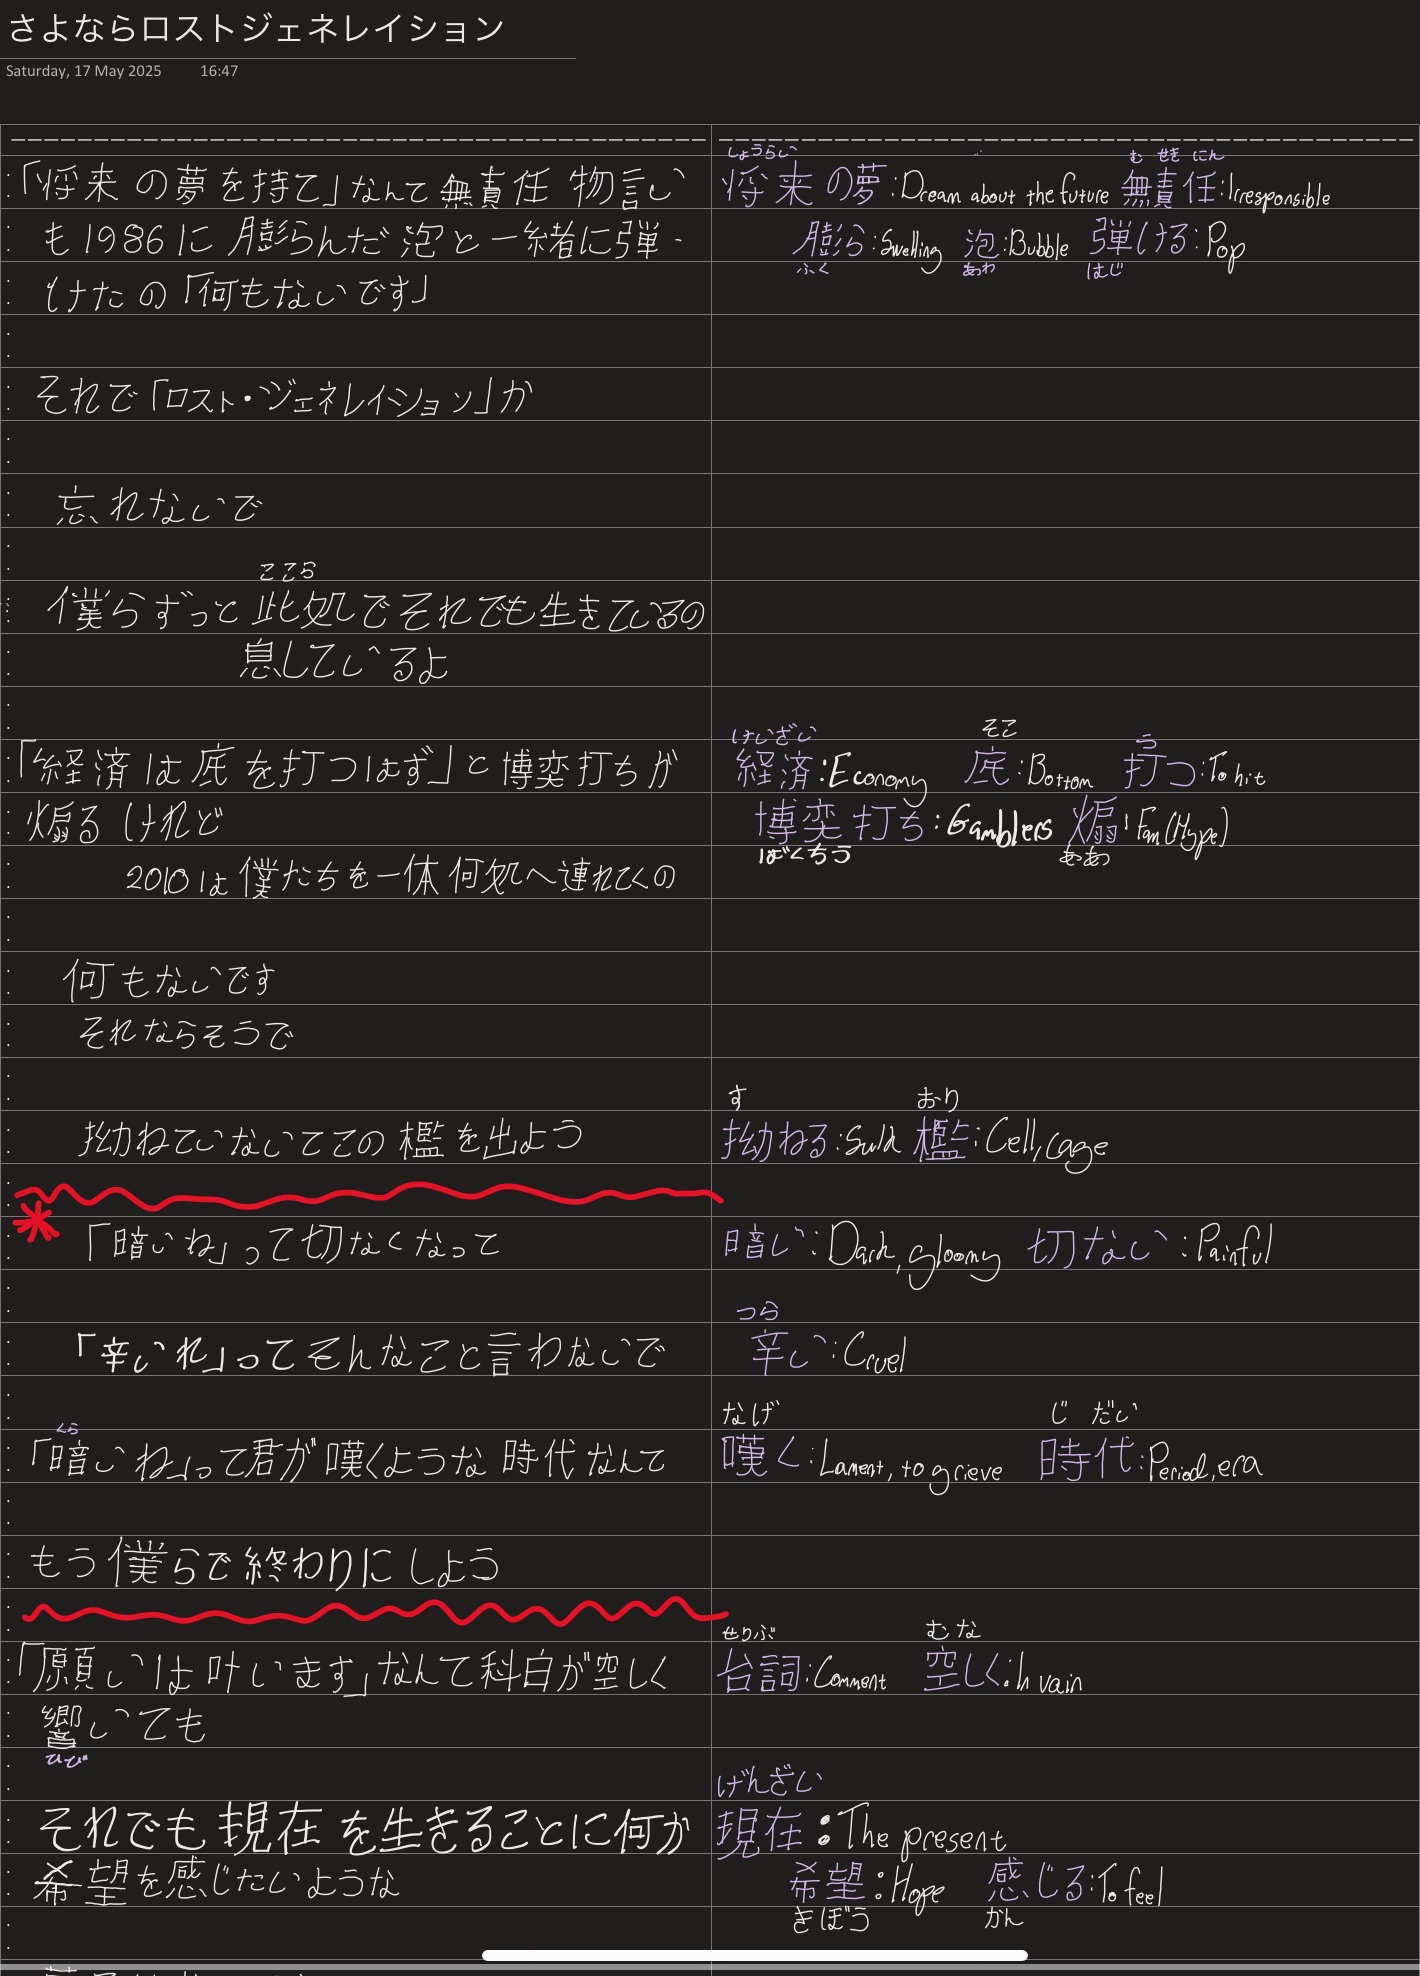 さよならロストジェネレイション
Saturday, 17 May 2025 16:47
「将来の夢を持て」なんて無責任 物言い
しょうらい
む せき にん
将来の夢:Dream about the future 無責任:Irresponsible
も1986に膨らんだ泡と一緒に弾
膨ら:Swelling 泡:Bubble 弾ける:Pop
ふく あわ はじ
けたの「何もないです」
それで「ロスト・ジェネレイション」か
忘れないで
ここら
僕らずっと此処でそれでも生きているの
息しているよ
けいざい そこ う
「経済は底を打つはず」と博奕打ちが
経済:Economy 底:Bottom 打つ:To hit
煽るけれど
博奕打ち:Gamblers 煽:Fan(Hype)
ばくちう ああ
2010は僕たちを一体何処へ連れてくの
何もないです
それならそうで
す おり
拗ねていないでこの檻を出よう
拗ねる:Sulk 檻:Cell, cage
「暗いね」って切なくなって
暗い:Dark, gloomy 切ない:Painful
つら
「辛いれ」ってそんなこと言わないで
辛い:Cruel
なげ じ だい
くら
「暗いね」って君が嘆くような時代なんて
嘆く:Lament, to grieve 時代:Period, era
もう僕らで終わりにしよう
せりふ むな
「願いは叶います」なんて科白が空しく
台詞:Comment 空しく:In vain
響いても
ひび
げんざい
それでも現在を生きることに何か
現在:The present
希望を感じたいような
希望:Hope 感じる:To feel
きぼう かん